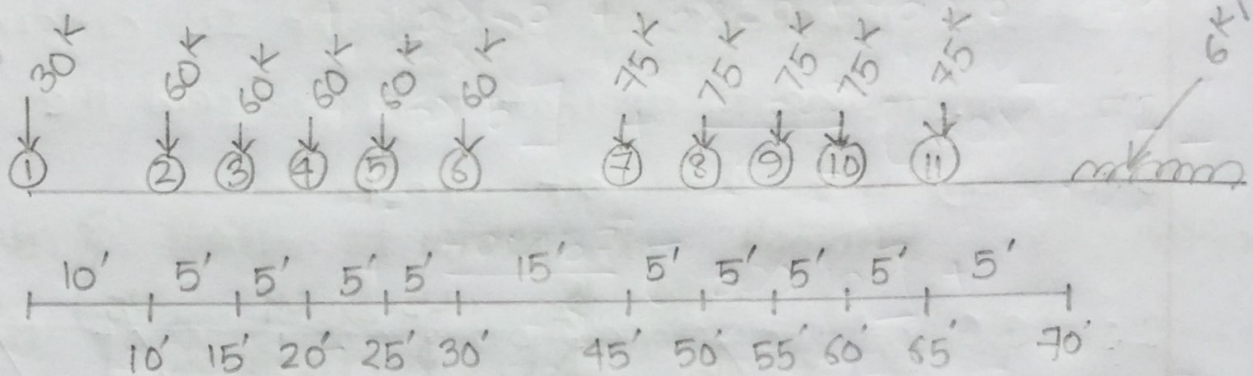 30K 60K 60K 60K 60K 60K 75K 75K 75K 75K 75K 6K/
1 2 3 4 5 6 7 8 9 10 11
10' 5' 5' 5' 5' 15' 5' 5' 5' 5' 5'
10' 15' 20' 25' 30' 45' 50' 55' 60' 65' 70'